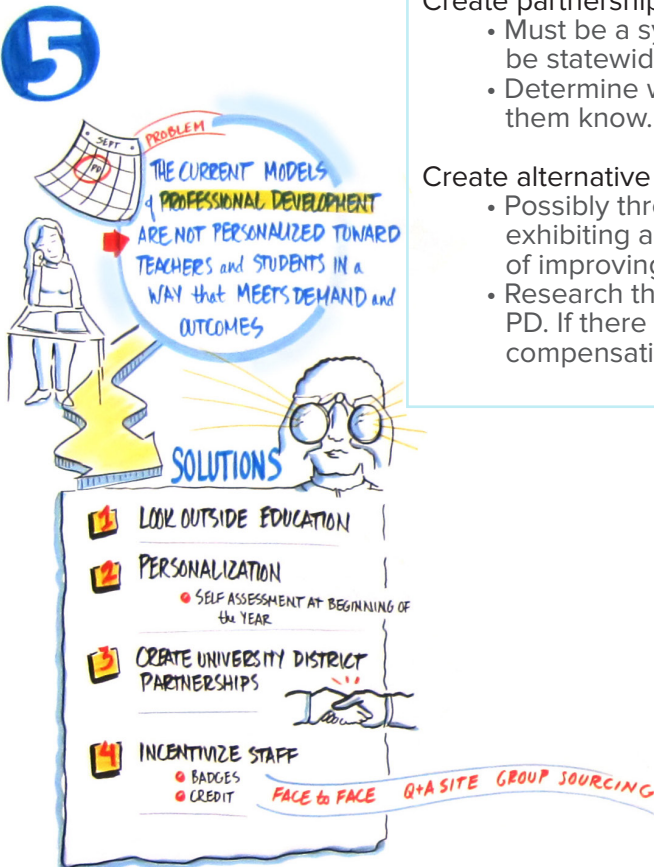 5
SEPT
PD
PROBLEM
THE CURRENT MODELS
of PROFESSIONAL DEVELOPMENT
ARE NOT PERSONALIZED TOWARD
TEACHERS and STUDENTS IN a
WAY that MEETS DEMAND and
OUTCOMES
SOLUTIONS
1 LOOK OUTSIDE EDUCATION
2 PERSONALIZATION
• SELF ASSESSMENT AT BEGINNING OF
the YEAR
3 CREATE UNIVERSITY DISTRICT
PARTNERSHIPS
4 INCENTIVIZE STAFF
• BADGES
• CREDIT
FACE to FACE Q+A SITE GROUP SOURCING
Create
• Must be a
be
• Determine
them know.
Create alternative
• Possibly
exhibiting
of improving
• Research
PD. If there